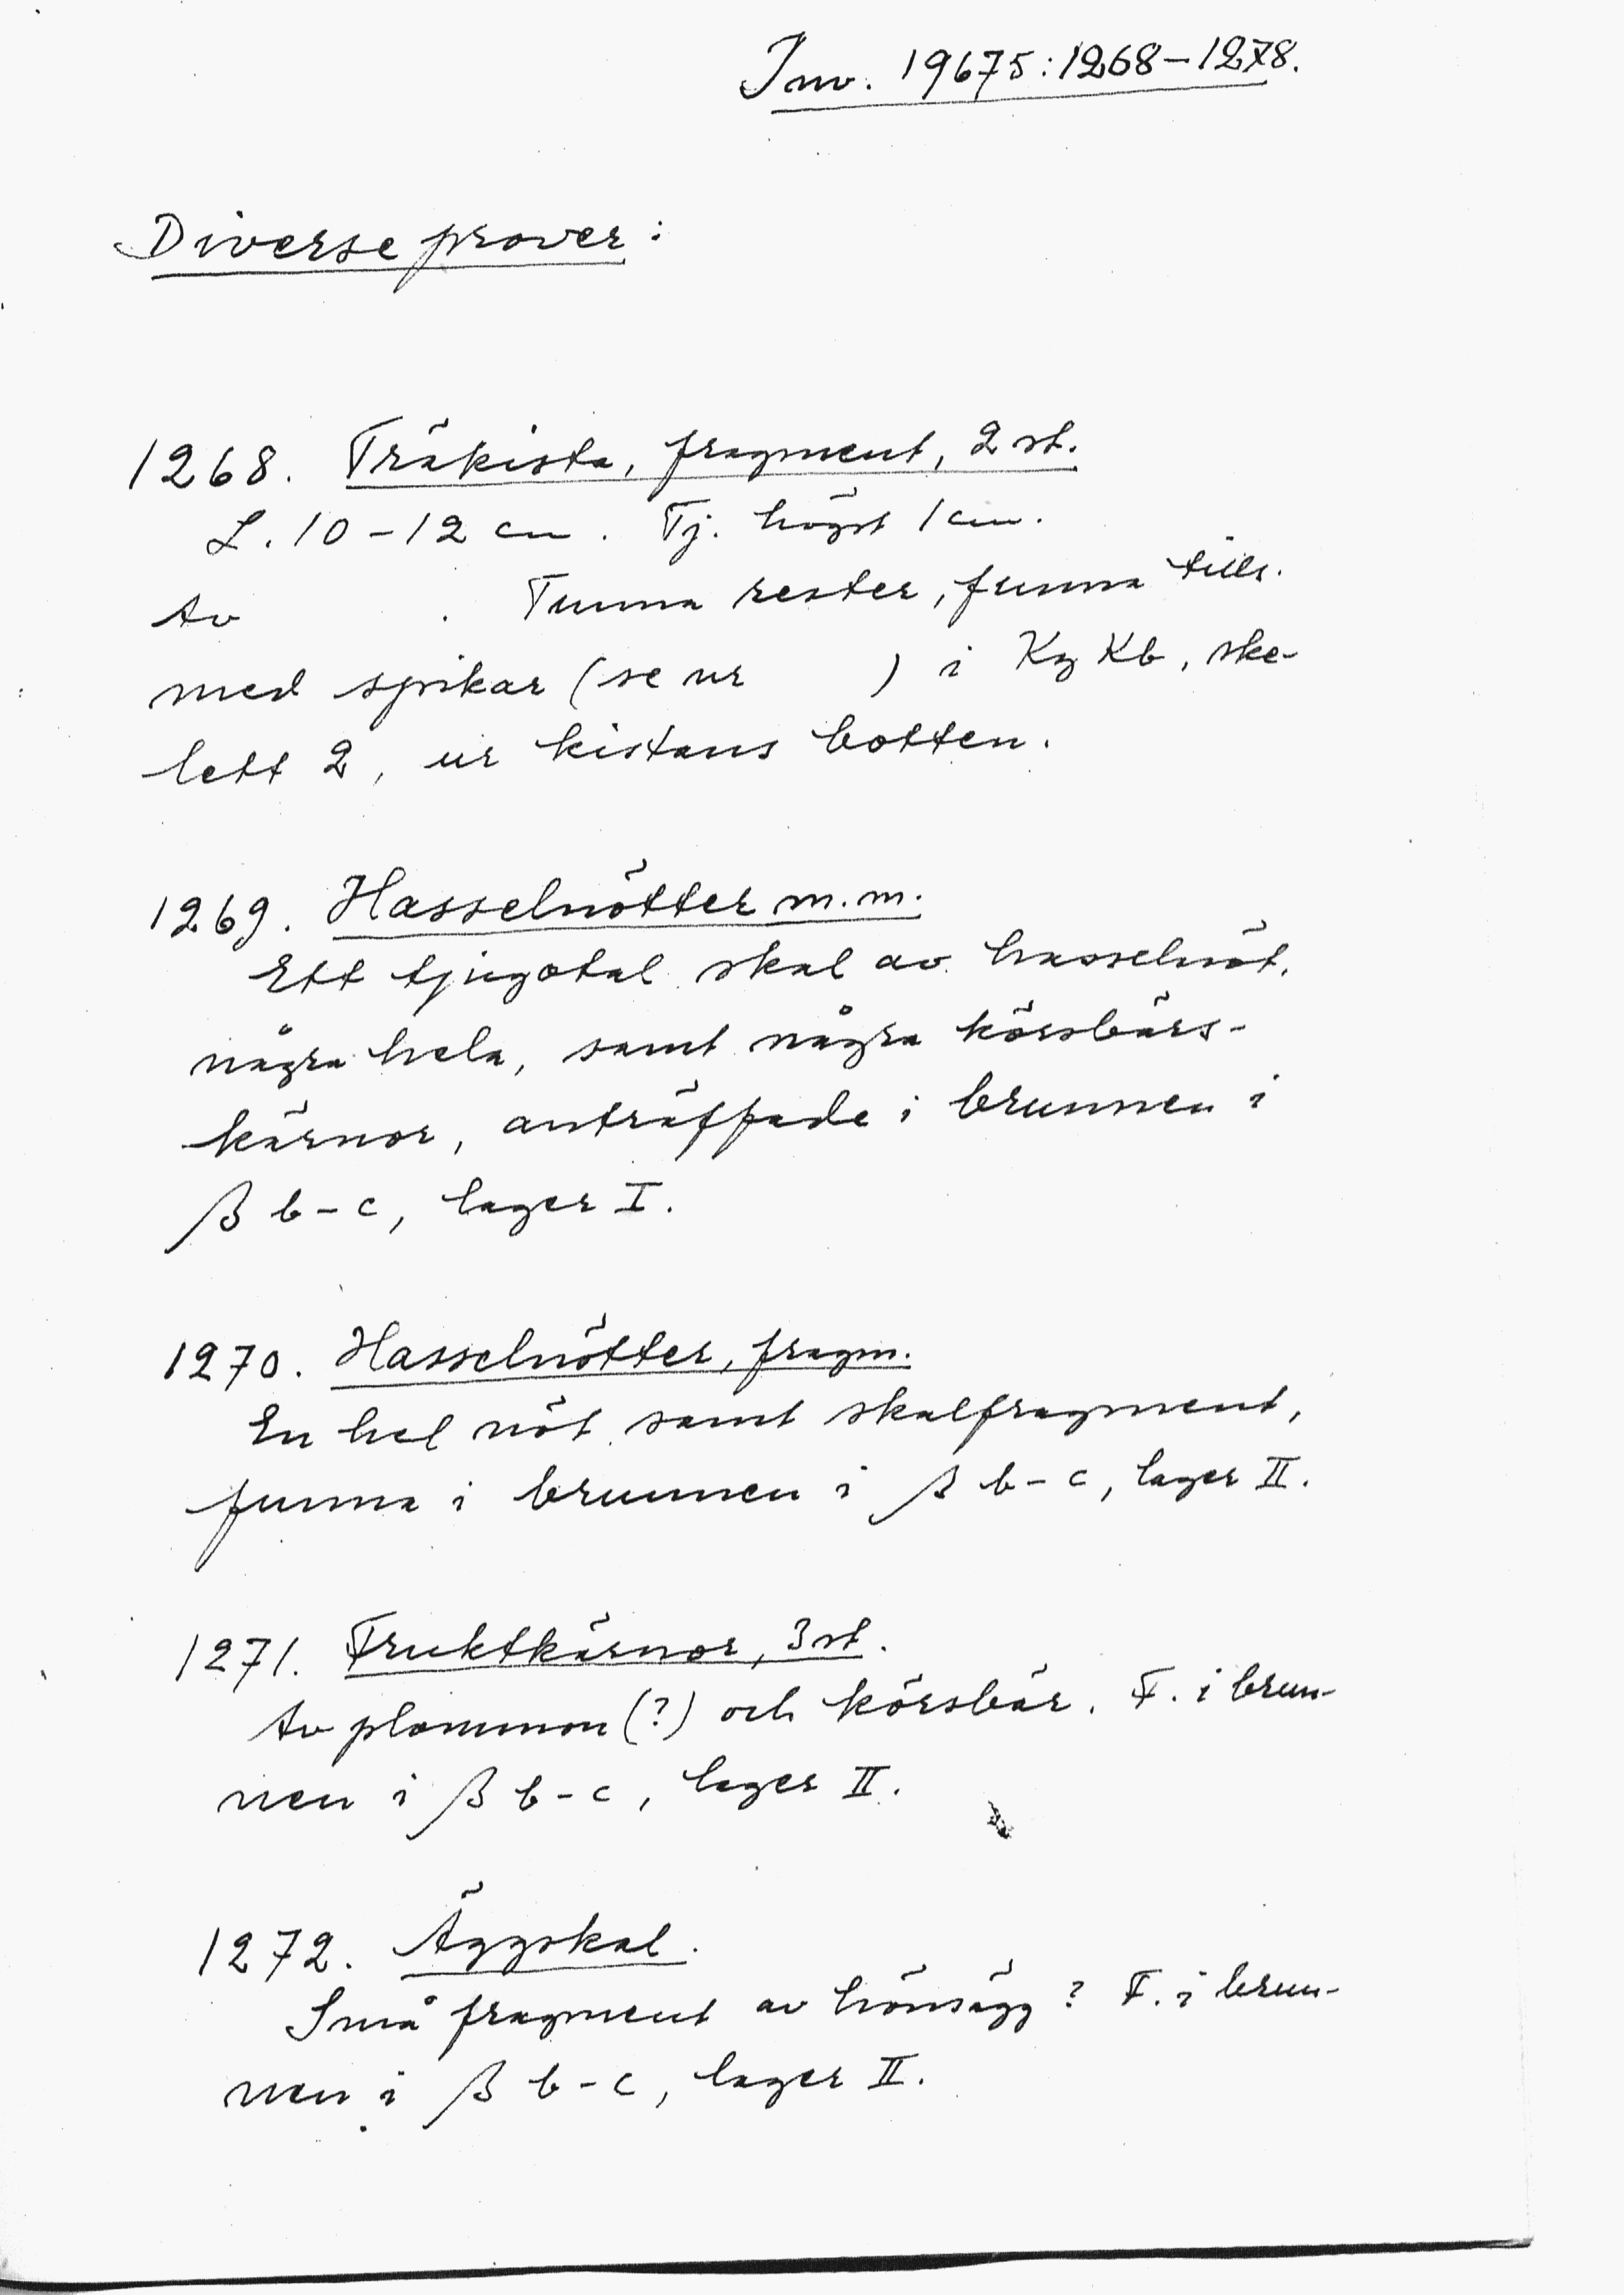 Inv. 19675:1268–1278.
Diverse prover:
1268. Träkista, fragment, 2 st.
L. 10–12 cm. Tj. högst 1 cm.
Av . Tunna rester, funna tills.
med spikar (se nr ) i Kz Kb, ske-
lett 2, ur kistans botten.
1269. Hasselnötter m.m.
Ett tjugotal skal av hasselnöt,
några hela, samt några körsbärs-
kärnor, anträffade i brunnen i
β b–c, lager I.
1270. Hasselnötter, fragm.
En hel nöt samt skalfragment,
funna i brunnen i β b–c, lager II.
1271. Fruktkärnor, 3 st.
Av plommon (?) och körsbär. F. i brun-
nen i β b–c, lager II.
1272. Äggskal.
Små fragment av hönsägg? F. i brun-
nen i β b–c, lager II.